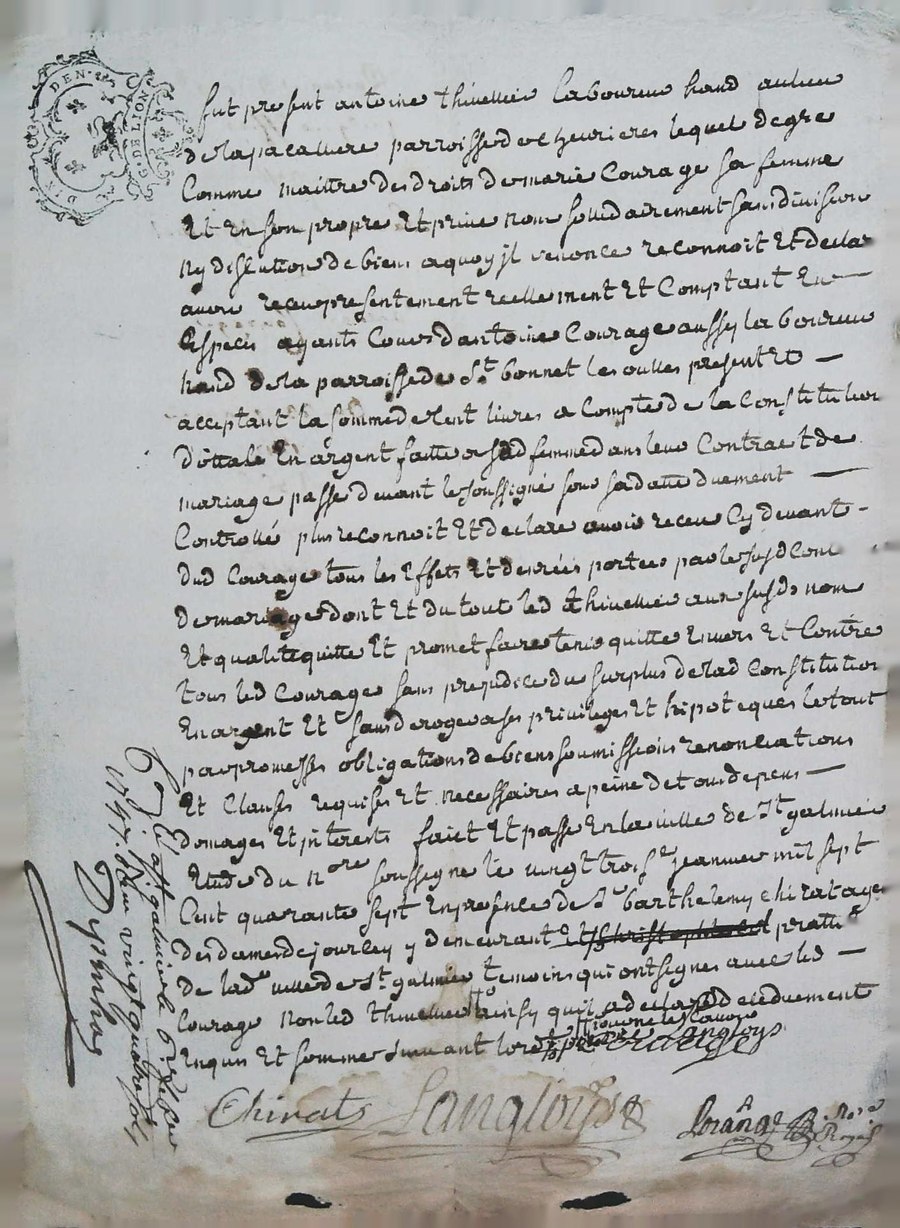 GEN. DE LION
fut present antoine thivellier laboureur hand au lieu
de la pacalliere parroisse de chevrieres lequel de gre
Comme maittre des droits de marie Courage sa femme
Et En son propre Et prive nom solidairement sans division
Ny discution de biens a quoy jl renonce reconnoit Et declare
avoir receu presentement reellement Et Comptant En
Especes ayants Cours d'antoine Courage aussy laboureur
hand de la parroisse de St bonnet les oulles present Et
acceptant la somme de Cent livres a Compte de la Constitution
dottale En argent faitte a sad femme dans leur Contract de
mariage passe devant le soussigne sous sa datte duement
Controllé plus reconnoit Et declare avoir receu Cy devant
dud Courage tous les Effets Et denrées portees par le susd Cont
de mariage dont Et du tout led thivellier aux susds nom
Et qualité quitte Et promet faire tenir quitte Envers Et Contre
tous led Courage sans prejudice du surplus de lad Constitution
En argent Et sans deroger a ses privileges Et hipoteques le tout
par promesses obligations de biens soumissions renonciations
Et Clauses requises Et necessaires a peine de tous depens
domages Et jnterests faict Et passé En la ville de St galmier
Etude du nre soussigne le vingt trois jeanvier mil sept
Cent quarante sept En presence de Sr barthelemy chirat
des dames de jourcey y demeurant
de lad ville de St galmier temoins qui ont signes avec led
Courage non led thivellier ainsy qu'il a declaré de ce duement
Enquis Et sommé suivant l'ord
Langloys
Chirat Langloys
Nore Royal
Con a St galmier le
1747. Reçu vingt quatre sols